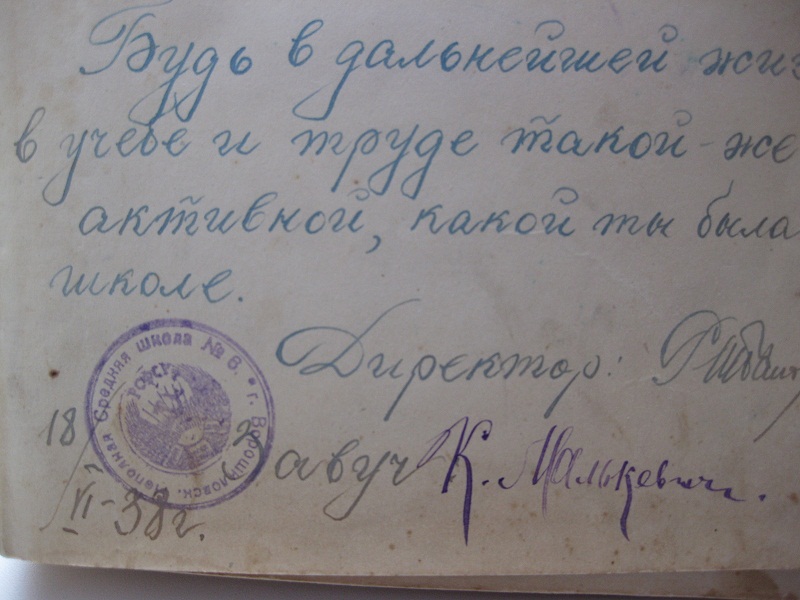 Будь в дальнейшей жиз
в учебе и труде такой-же
активной, какой ты была
школе.
Директор:
Завуч К. Малькевич.
18/VI-38г.
Неполная Средняя школа № 6. • г. Ворошиловск.
РСФСР